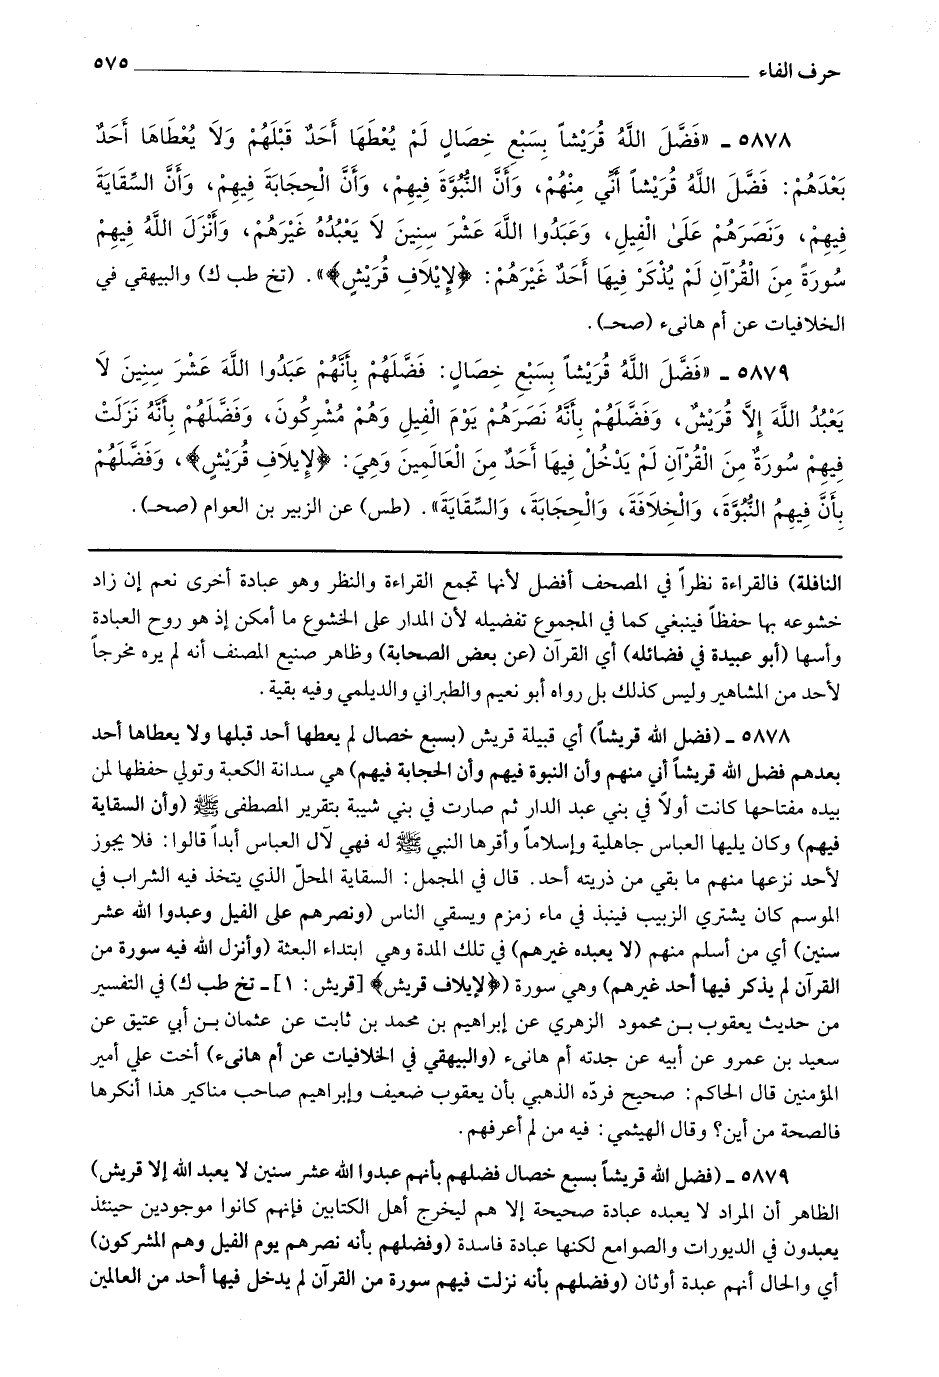 حرف الفاء ٥٧٥
٥٨٧٨ ـ «فَضَّلَ اللَّهُ قُرَيْشاً بِسَبْعِ خِصَالٍ لَمْ يُعْطَهَا أَحَدٌ قَبْلَهُمْ وَلَا يُعْطَاهَا أَحَدٌ
بَعْدَهُمْ: فَضَّلَ اللَّهُ قُرَيْشاً أَنِّي مِنْهُمْ، وَأَنَّ النُّبُوَّةَ فِيهِمْ، وَأَنَّ الْحِجَابَةَ فِيهِمْ، وَأَنَّ السِّقَايَةَ
فِيهِمْ، وَنَصَرَهُمْ عَلَىٰ الْفِيلِ، وَعَبَدُوا اللَّهَ عَشْرَ سِنِينَ لَا يَعْبُدُهُ غَيْرُهُمْ، وَأَنْزَلَ اللَّهُ فِيهِمْ
سُورَةً مِنَ الْقُرْآنِ لَمْ يُذْكَرْ فِيهَا أَحَدٌ غَيْرُهُمْ: ﴿لِإِيْلَافِ قُرَيْشٍ﴾». (تخ طب ك) والبيهقي في
الخلافيات عن أم هانىء (صحـ).
٥٨٧٩ ـ «فَضَّلَ اللَّهُ قُرَيْشاً بِسَبْعِ خِصَالٍ: فَضَّلَهُمْ بِأَنَّهُمْ عَبَدُوا اللَّهَ عَشْرَ سِنِينَ لَا
يَعْبُدُ اللَّهَ إِلَّا قُرَيْشٌ، وَفَضَّلَهُمْ بِأَنَّهُ نَصَرَهُمْ يَوْمَ الْفِيلِ وَهُمْ مُشْرِكُونَ، وَفَضَّلَهُمْ بِأَنَّهُ نَزَلَتْ
فِيهِمْ سُورَةٌ مِنَ الْقُرْآنِ لَمْ يَدْخُلْ فِيهَا أَحَدٌ مِنَ الْعَالَمِينَ وَهِيَ: ﴿لِإِيلَافِ قُرَيْشٍ﴾، وَفَضَّلَهُمْ
بِأَنَّ فِيهِمُ النُّبُوَّةَ، وَالْخِلَافَةَ، وَالْحِجَابَةَ، وَالسِّقَايَةَ». (طس) عن الزبير بن العوام (صحـ).
النافلة) فالقراءة نظراً في المصحف أفضل لأنها تجمع القراءة والنظر وهو عبادة أخرى نعم إن زاد
خشوعه بها حفظاً فينبغي كما في المجموع تفضيله لأن المدار على الخشوع ما أمكن إذ هو روح العبادة
وأسها (أبو عبيدة في فضائله) أي القرآن (عن بعض الصحابة) وظاهر صنيع المصنف أنه لم يره مخرجاً
لأحد من المشاهير وليس كذلك بل رواه أبو نعيم والطبراني والديلمي وفيه بقية.
٥٨٧٨ ـ (فضل الله قريشاً) أي قبيلة قريش (بسبع خصال لم يعطها أحد قبلها ولا يعطاها أحد
بعدهم فضل الله قريشاً أني منهم وأن النبوة فيهم وأن الحجابة فيهم) هي سدانة الكعبة وتولي حفظها لمن
بيده مفتاحها كانت أولاً في بني عبد الدار ثم صارت في بني شيبة بتقرير المصطفى ﷺ (وأن السقاية
فيهم) وكان يليها العباس جاهلية وإسلاماً وأقرها النبي ﷺ له فهي لآل العباس أبداً قالوا: فلا يجوز
لأحد نزعها منهم ما بقي من ذريته أحد. قال في المجمل: السقاية المحلّ الذي يتخذ فيه الشراب في
الموسم كان يشتري الزبيب فينبذ في ماء زمزم ويسقي الناس (ونصرهم على الفيل وعبدوا الله عشر
سنين) أي من أسلم منهم (لا يعبده غيرهم) في تلك المدة وهي ابتداء البعثة (وأنزل الله فيه سورة من
القرآن لم يذكر فيها أحد غيرهم) وهي سورة (﴿لإيلاف قريش﴾ [قريش: ١] ـ تخ طب ك) في التفسير
من حديث يعقوب بن محمود الزهري عن إبراهيم بن محمد بن ثابت عن عثمان بن أبي عتيق عن
سعيد بن عمرو عن أبيه عن جدته أم هانىء (والبيهقي في الخلافيات عن أم هانىء) أخت علي أمير
المؤمنين قال الحاكم: صحيح فردّه الذهبي بأن يعقوب ضعيف وإبراهيم صاحب مناكير هذا أنكرها
فالصحة من أين؟ وقال الهيثمي: فيه من لم أعرفهم.
٥٨٧٩ ـ (فضل الله قريشاً بسبع خصال فضلهم بأنهم عبدوا الله عشر سنين لا يعبد الله إلا قريش)
الظاهر أن المراد لا يعبده عبادة صحيحة إلا هم ليخرج أهل الكتابين فإنهم كانوا موجودين حينئذ
يعبدون في الديورات والصوامع لكنها عبادة فاسدة (وفضلهم بأنه نصرهم يوم الفيل وهم المشركون)
أي والحال أنهم عبدة أوثان (وفضلهم بأنه نزلت فيهم سورة من القرآن لم يدخل فيها أحد من العالمين